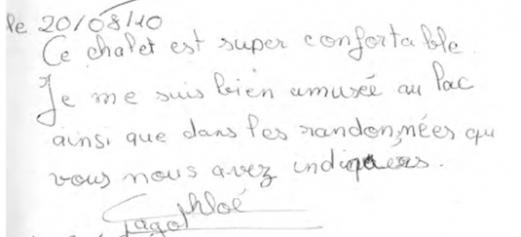 le 20/08/10
Ce chalet est super confortable.
Je me suis bien amusée au lac
ainsi que dans les randonnées qu
vous nous avez indiquées.
Chloé